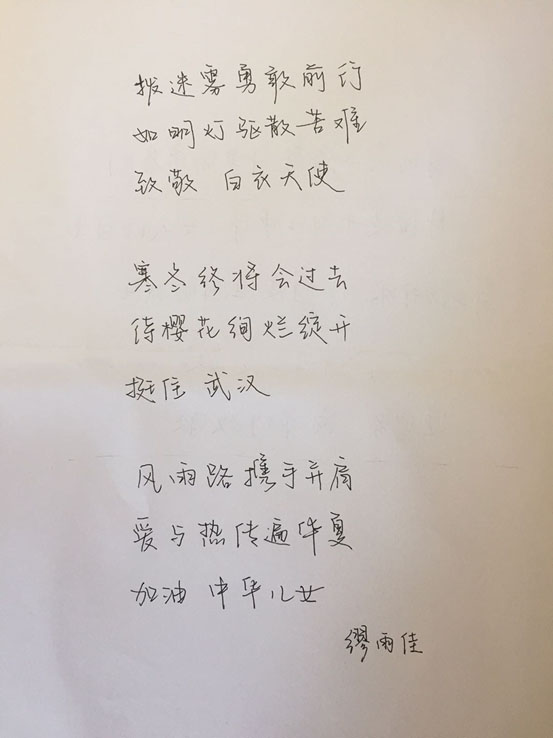 拨迷雾勇敢前行
如明灯驱散苦难
致敬 白衣天使
寒冬终将会过去
待樱花绚烂绽开
挺住 武汉
风雨路携手并肩
爱与热传遍华夏
加油 中华儿女
缪雨佳